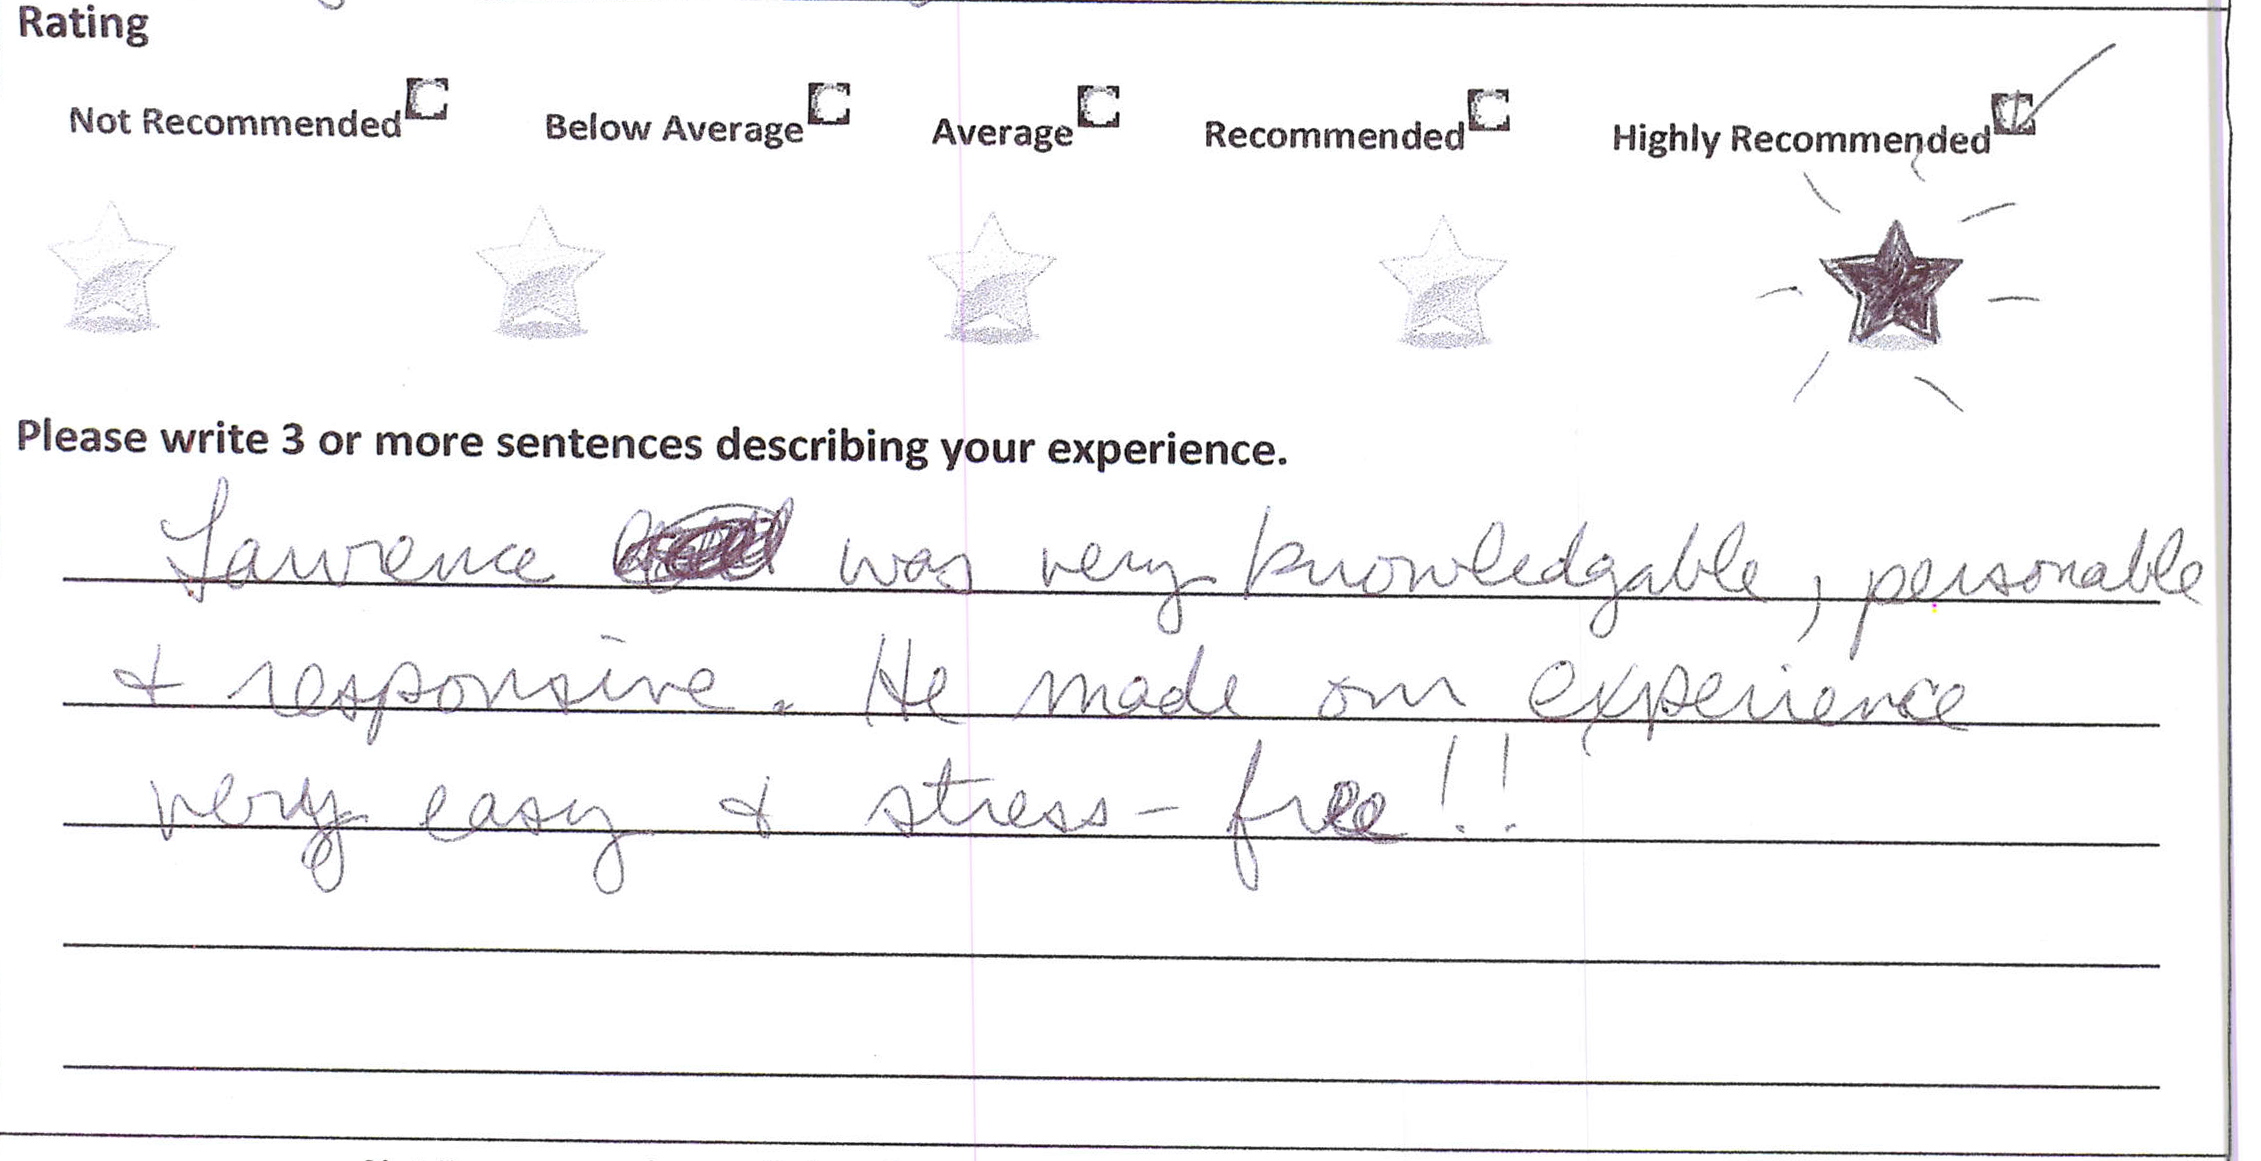 Rating
Not Recommended Below Average Average Recommended Highly Recommended
Please write 3 or more sentences describing your experience.
Lawrence was very knowledgable, personable
& responsive. He made our experience
very easy & stress-free!!